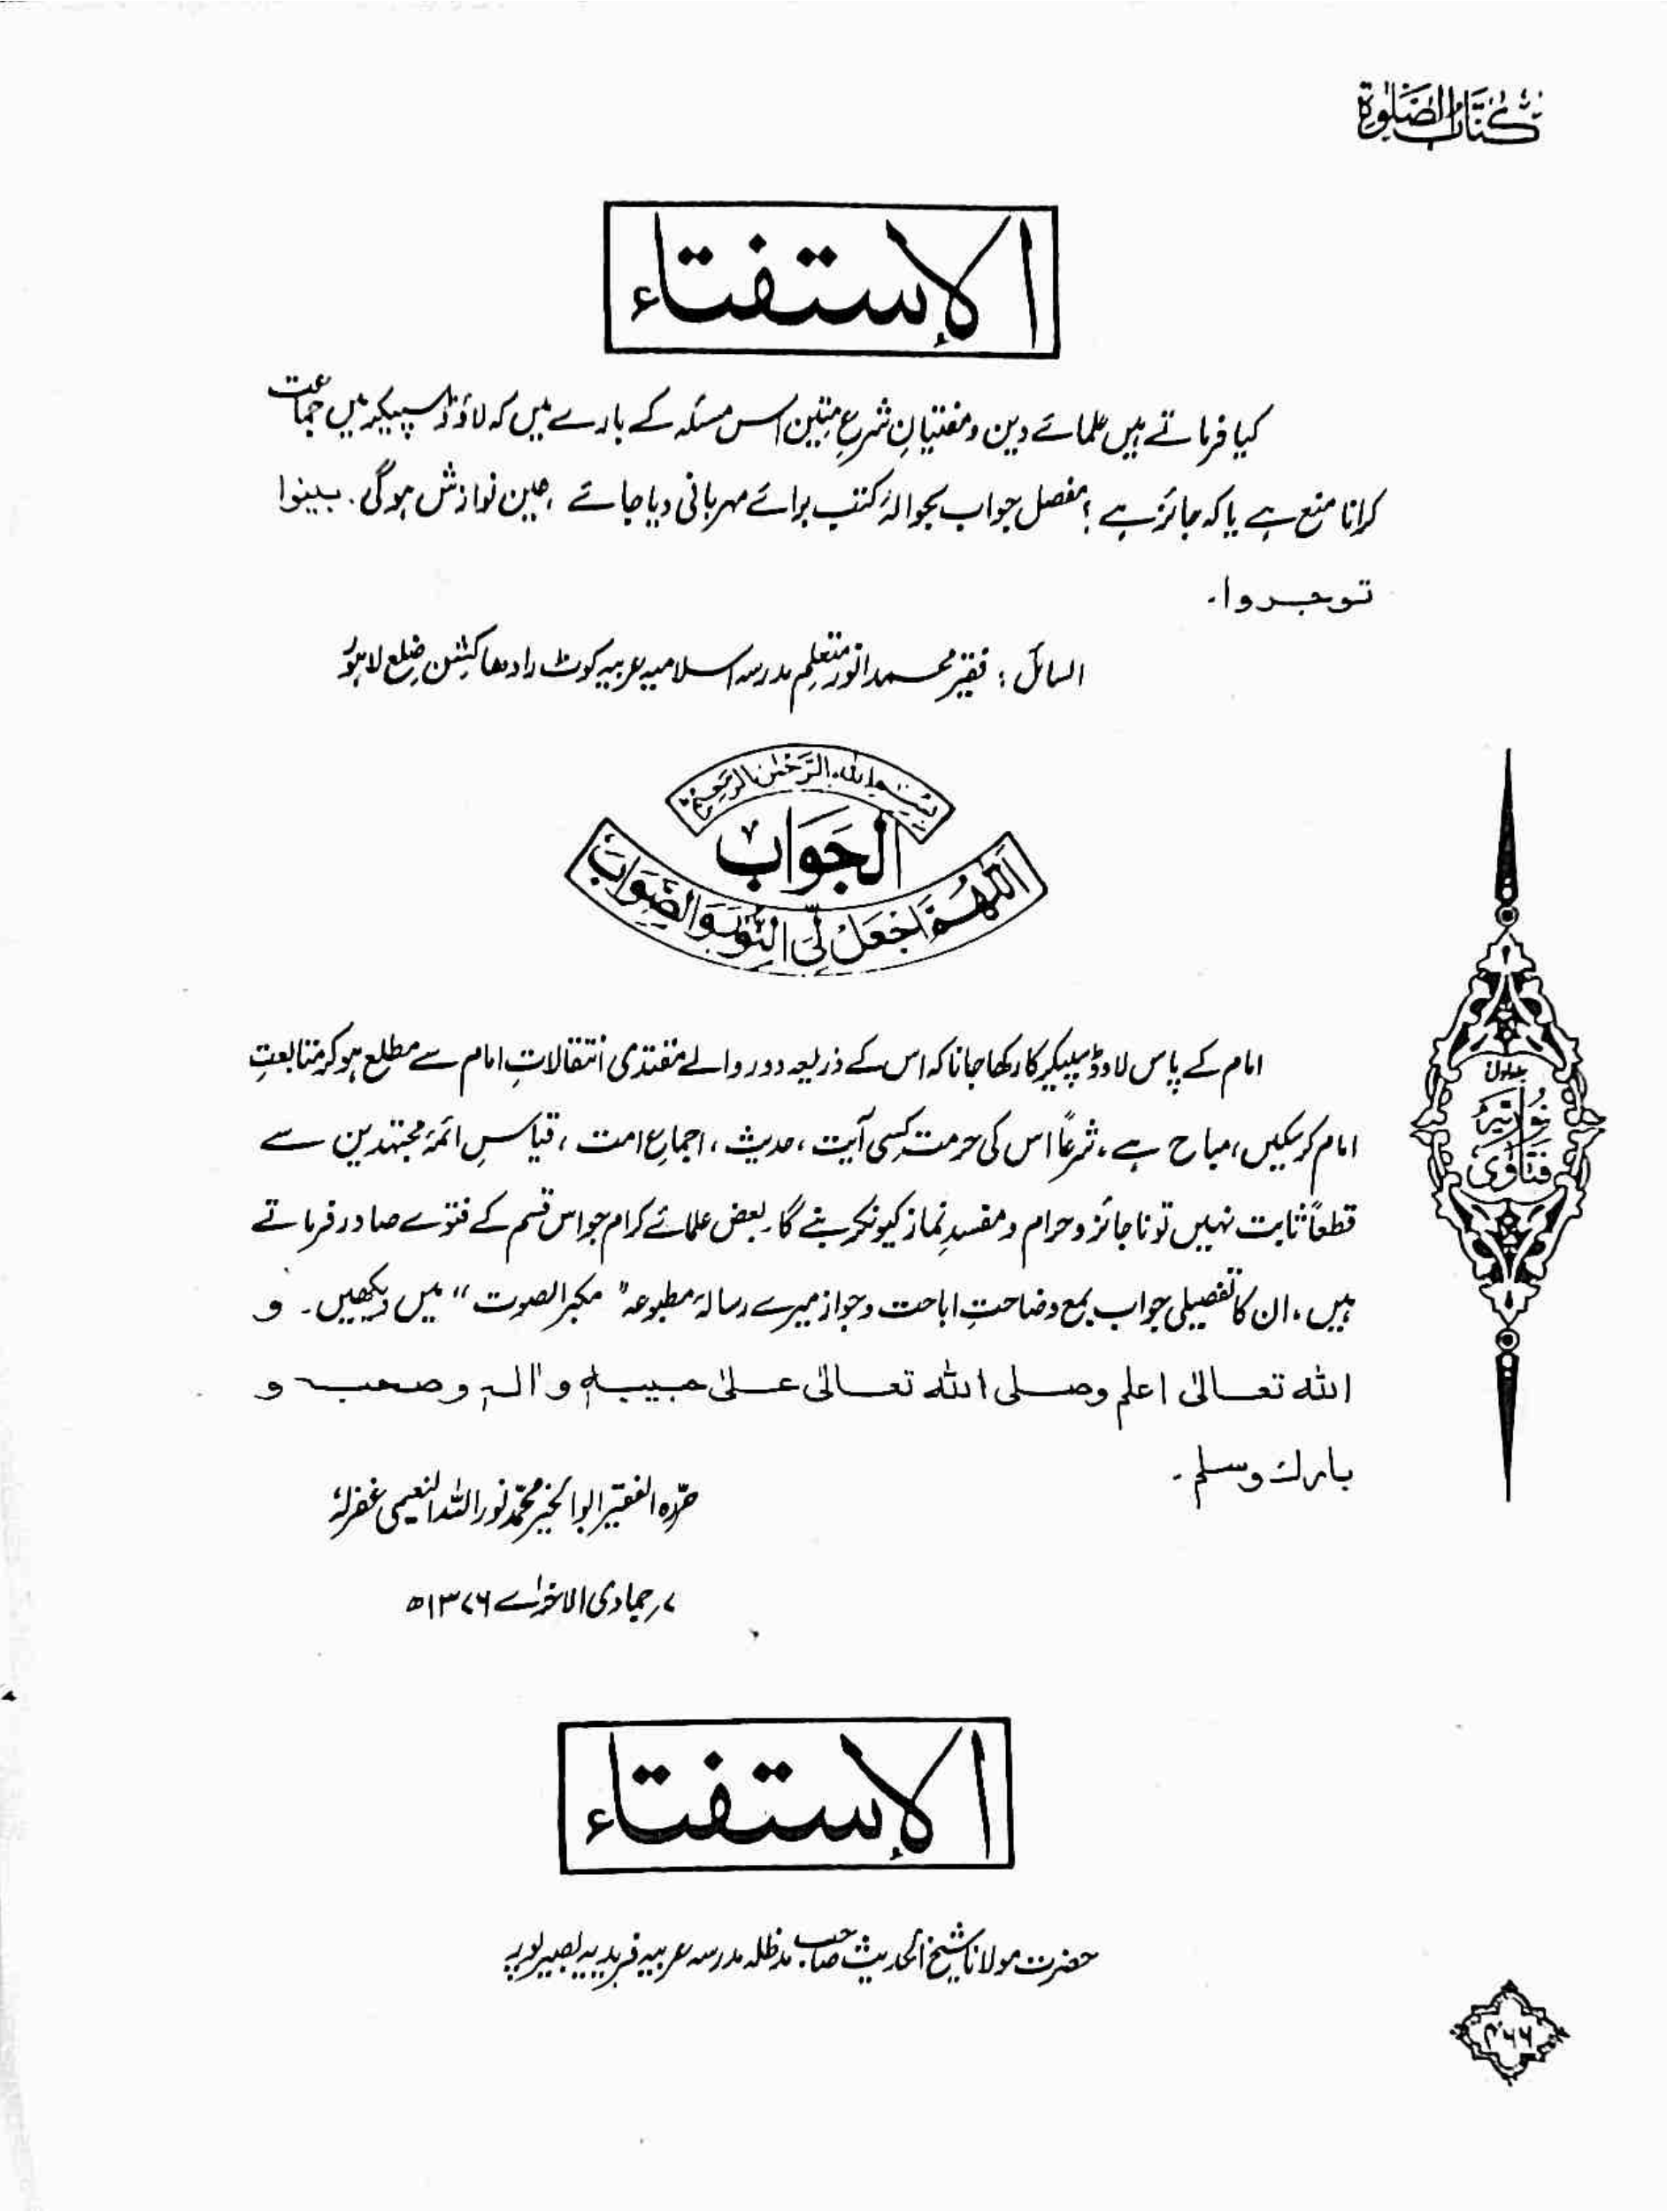 کتاب الصلوٰۃ
الإستفتاء
کیا فرماتے ہیں علمائے دین و مفتیانِ شرعِ متین اس مسئلہ کے بارے میں کہ لاؤڈ سپیکر میں جماعت
کرانا منع ہے یا کہ جائز ہے ؟ مفصل جواب بحوالۂ کتب برائے مہربانی دیا جائے ، عین نوازش ہوگی۔ بینوا
توجروا۔
السائل : فقیر محمد انور متعلم مدرسہ اسلامیہ عربیہ کوٹ رادھا کشن ضلع لاہور
بسم الله الرحمن الرحيم
الجَوَابُ
اَللّٰهُمَّ اجْعَلْ لِّيَ النُّوْرَ وَالصَّوَابَ
امام کے پاس لاوڈ سپیکر کا رکھا جانا کہ اس کے ذریعہ دور والے مقتدی انتقالاتِ امام سے مطلع ہو کر متابعتِ
امام کر سکیں، مباح ہے ، شرعاً اس کی حرمت کسی آیت ، حدیث ، اجماعِ امت ، قیاسِ ائمۂ مجتہدین سے
قطعاً ثابت نہیں تو ناجائز و حرام و مفسدِ نماز کیونکر بنے گا۔ بعض علمائے کرام جو اس قسم کے فتوے صادر فرماتے
ہیں ، ان کا تفصیلی جواب بمع وضاحتِ اباحت و جواز میرے رسالۂ مطبوعہ "مکبر الصوت" میں دیکھیں۔ و
الله تعالیٰ اعلم وصلی الله تعالیٰ علیٰ حبیبہٖ و اٰلہٖ و صحبہ و
بارك وسلم۔
حرّرہ الفقیر ابوالخیر محمد نور اللہ النعیمی غفرلہٗ
۷؍ جمادی الاخرٰے ۱۳۷۶ھ
جلد اول
نُورِیَّۂ
فَتَاوٰی
الإستفتاء
حضرت مولانا شیخ الحدیث صاحب مدظلہ مدرسہ عربیہ فریدیہ بصیرپور
۳۶۶